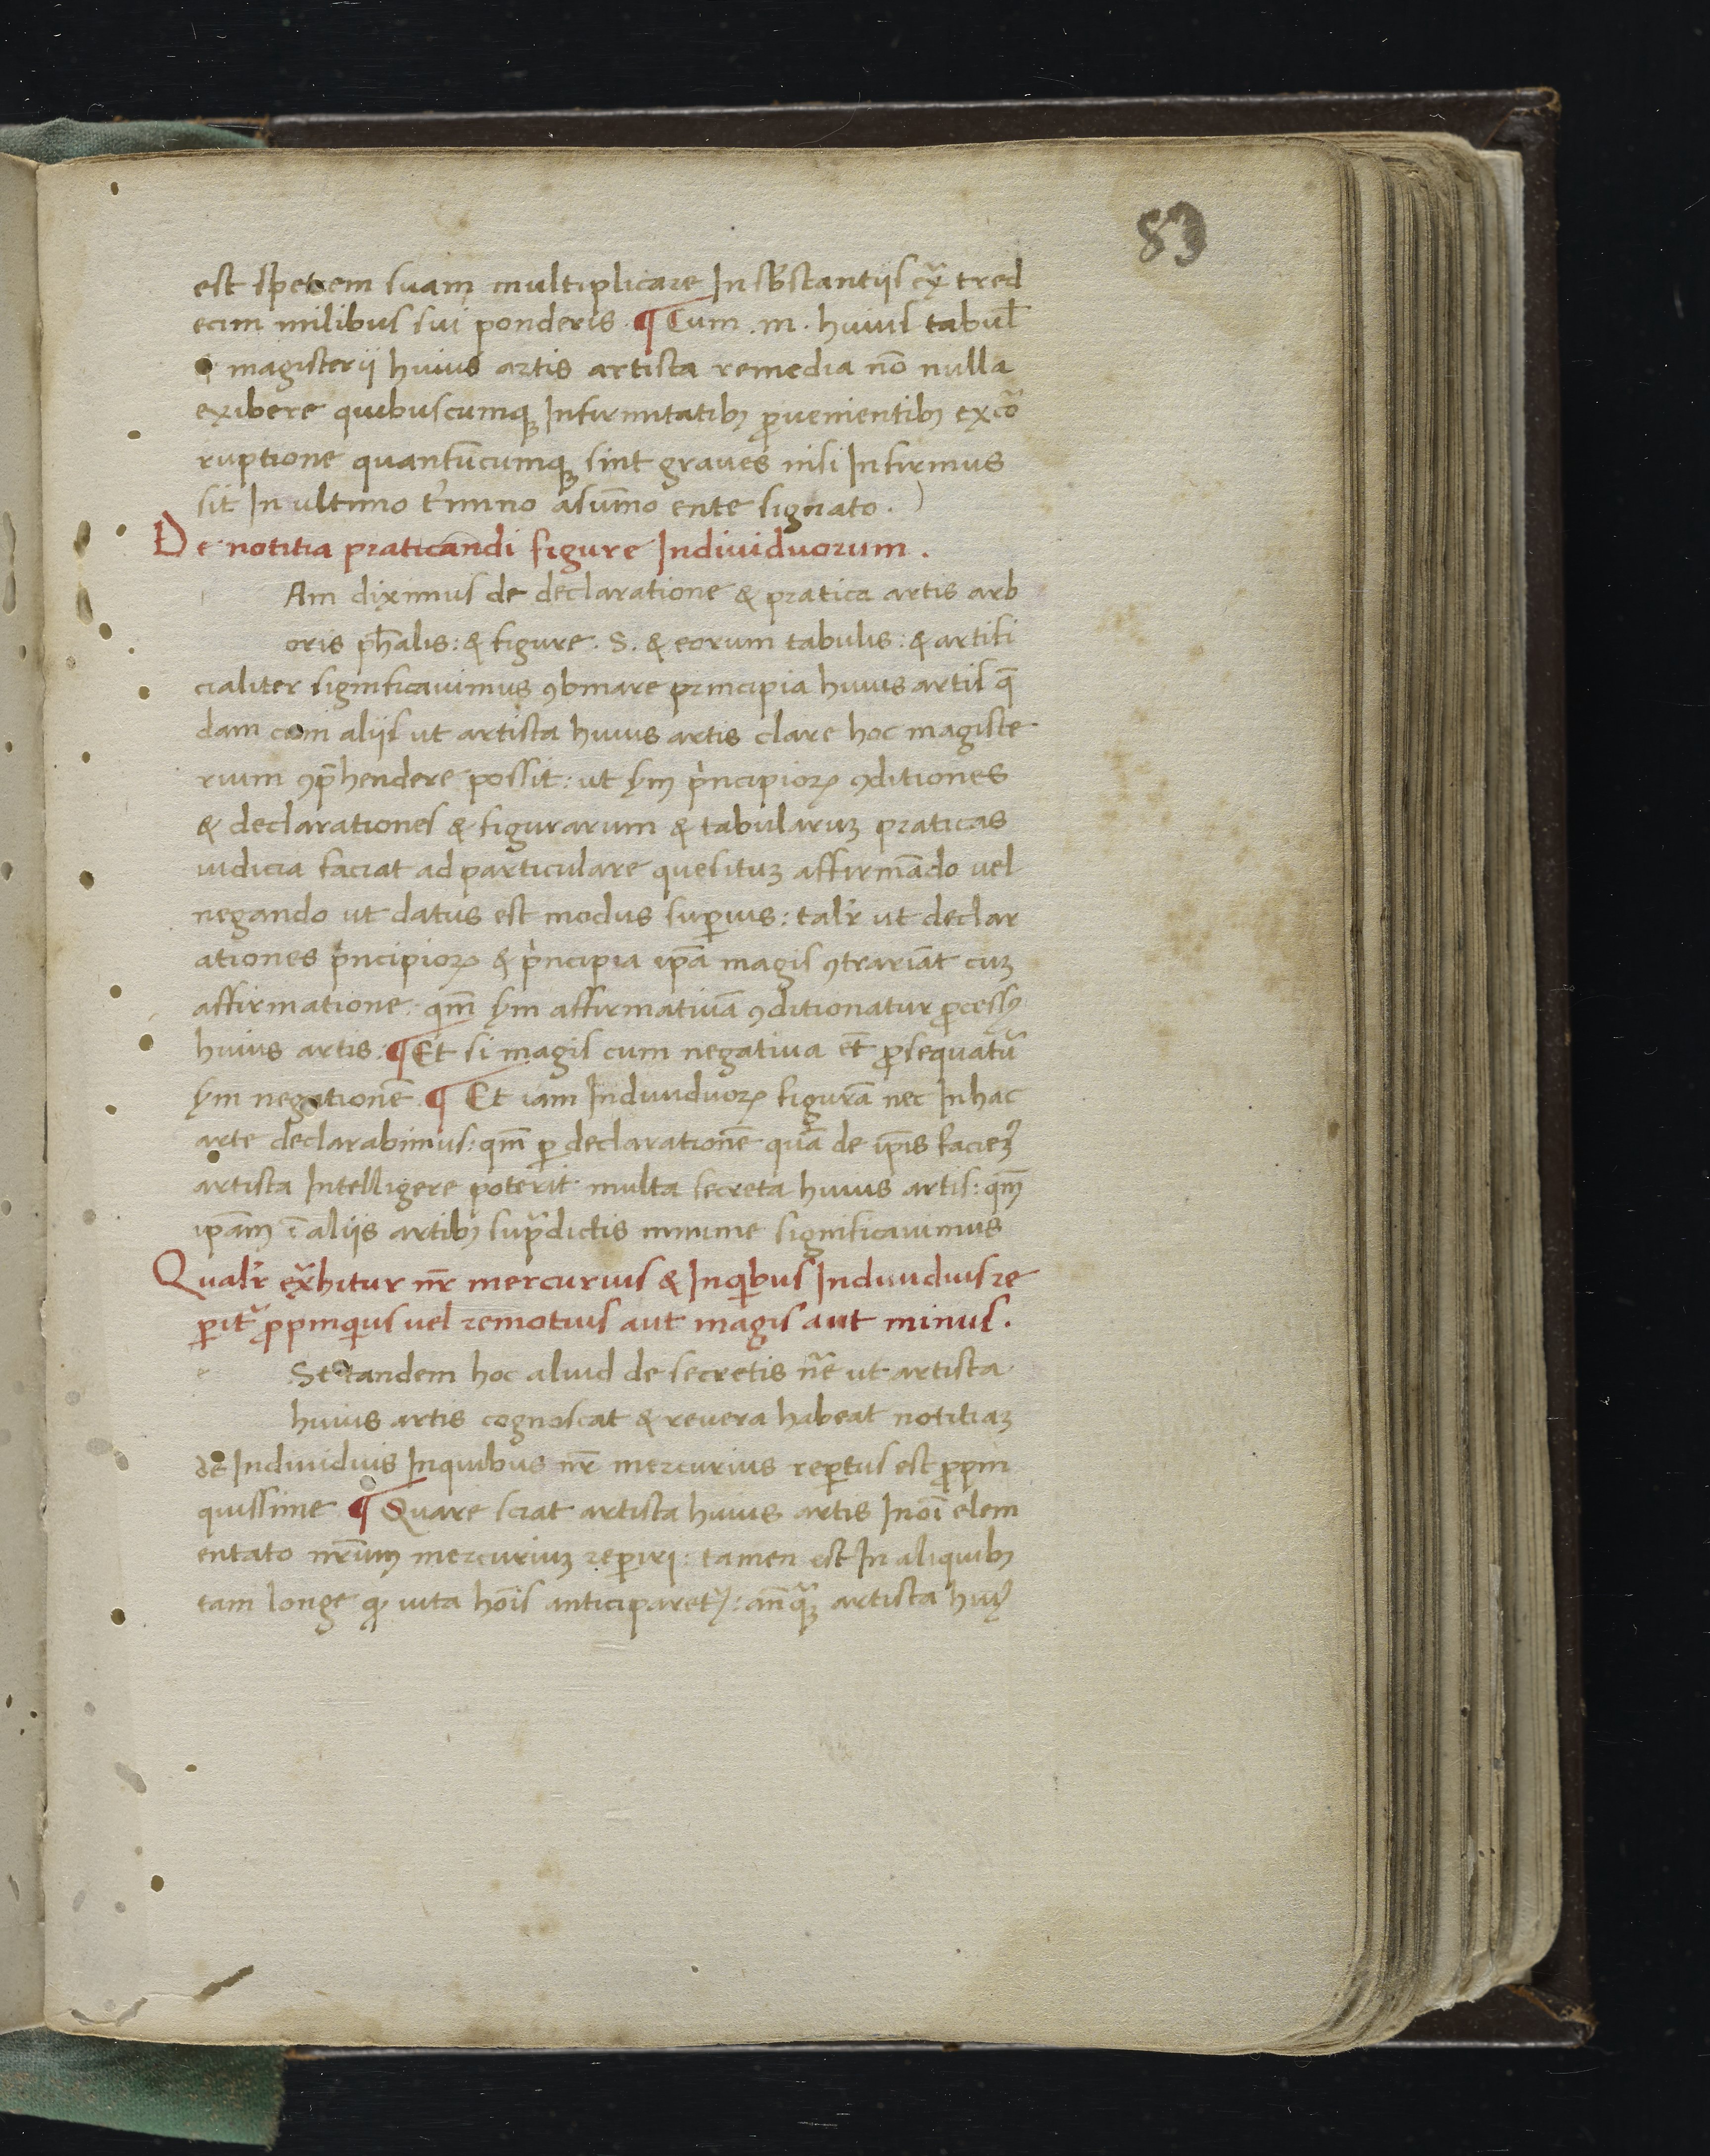 83
est speciem suam multiplicare In sb̄stantiis cū tred
ecim milibus sui ponderis. ¶ Cum .m. huius tabul̄
magisterii huius artis artista remedia nō nulla
exibere quibuscumqꝫ Infirmitatibꝫ ꝓuenientibꝫ ex cō
ruptione quantūcumqꝫ sint graues nisi Infirmus
sit In ultimo t̄mino a sūmo ente signato.
De notitia praticandi figure Indiuiduorum.
Am diximus de declaratione & pratica artis arb
oris ph̄alis: & figure .S. & eorum tabulis: & artifi
cialiter significauimus ꝯbinare principia huius artis q̄
dam cum aliis ut artista huius artis clare hoc magiste
rium ꝯp̄hendere possit: ut sm̄ pͥncipioꝝ ꝯditiones
& declarationes & figurarum & tabularuꝫ praticas
iudicia faciat ad particulare quesituꝫ affirmādo uel
negando ut datus est modus suꝑius: talr̄ ut declar
ationes pͥncipioꝝ & pͥncipia ip̄a magis ꝯtrariāt cuꝫ
affirmatione. qm̄ sm̄ affirmatiuā ꝯditionatur ꝓcessꝰ
huius artis: ¶ Et si magis cum negatiua et̄ ꝓsequatur̄
sm̄ negationē. ¶ Et iam Indiuiduoꝝ figurā nec In hac
arte declarabimus: qm̄ ꝑ declarationē quā de ip̄is faciem̄
artista Intelligere poterit multa secreta huius artis: qm̄
ip̄am ī aliis artibꝫ sup̄dictis minime significauimus
Qualr̄ exh̄itur nr̄ mercurius & In qͥbus Indiuiduis re
ꝑit̄ ꝓpinqͥus uel remotius aut magis aut minus.
St tandem hoc aliud de secretis nr̄e ut artista
huius artis cognoscat & reuera habeat notitiaꝫ
de Indiuiduis In quibus nr̄ mercurius reꝑtus est ꝓpin
quissime ¶ Quare sciat artista huius artis In oī elem
entato nr̄um mercuriuꝫ reꝑiri: tamen est In aliquibꝫ
tam longe ꝙ uita hōis anticiparet᷑: an̄qꝫ artista huiꝰ